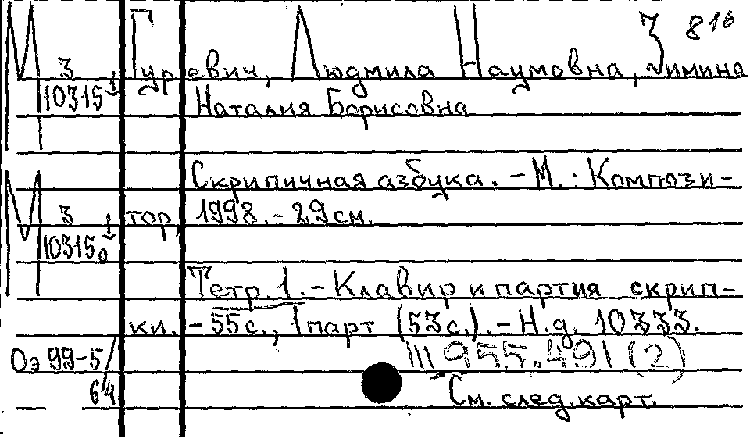 816
М Гуревич, Людмила Наумовна, Зимина
3
10315↓ Наталия Борисовна
Скрипичная азбука. - М.: Компози-
М 3
10315₀↓ тор, 1998. - 29 см.
Тетр. 1. - Клавир и партия скрип-
ки. - 55 с., 1 парт (53 с.). - Н.д. 10333.
Оэ 99-5/64
Ш 955.491 (2)
См. след. карт.